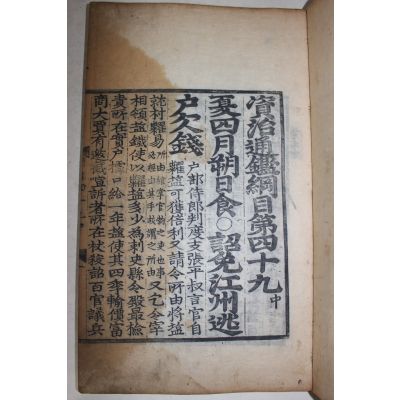 資治通鑑綱目第四十九中
夏四月朔日食○詔免江州逃
戶欠錢
戶部侍郎判度支張平叔言官自
糶鹽可獲倍利又請令所由將鹽
就村糶易
又乞令宰
相領鹽鐵使以糶鹽多少為刺史縣令殿最檢
責所在實戶據口給一年鹽使其四季輸價富
商大賈有邀截喧訴者所在杖殺詔百官議兵